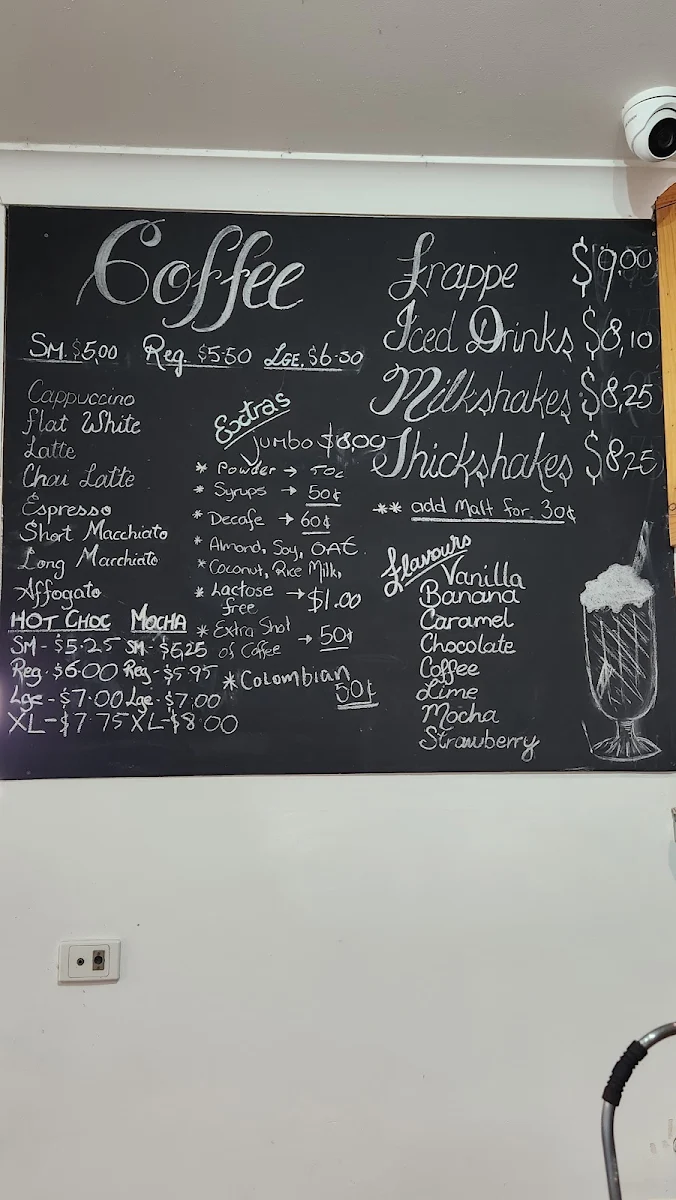 Coffee
SM. $5.00 Reg. $5.50 LGE. $6.50
Cappuccino
flat White
Latte
Chai Latte
Espresso
Short Macchiato
Long Macchiato
Affogato
HOT CHOC MOCHA
SM - $5.25 SM - $5.25
Reg. $6.00 Reg - $5.95
Lge - $7.00 Lge - $7.00
XL - $7.75 XL - $8.00
Extras
Jumbo $8.00
* Powder → 50¢
* Syrups → 50¢
* Decafe → 60¢
* Almond, Soy, OAT.
* Coconut, Rice Milk,
* Lactose free → $1.00
* Extra Shot of Coffee → 50¢
* Colombian
50¢
Frappe $9.00
Iced Drinks $8.10
Milkshakes $8.25
Thickshakes $8.25
** add Malt for 30¢
flavours
Vanilla
Banana
Caramel
Chocolate
Coffee
Lime
Mocha
Strawberry